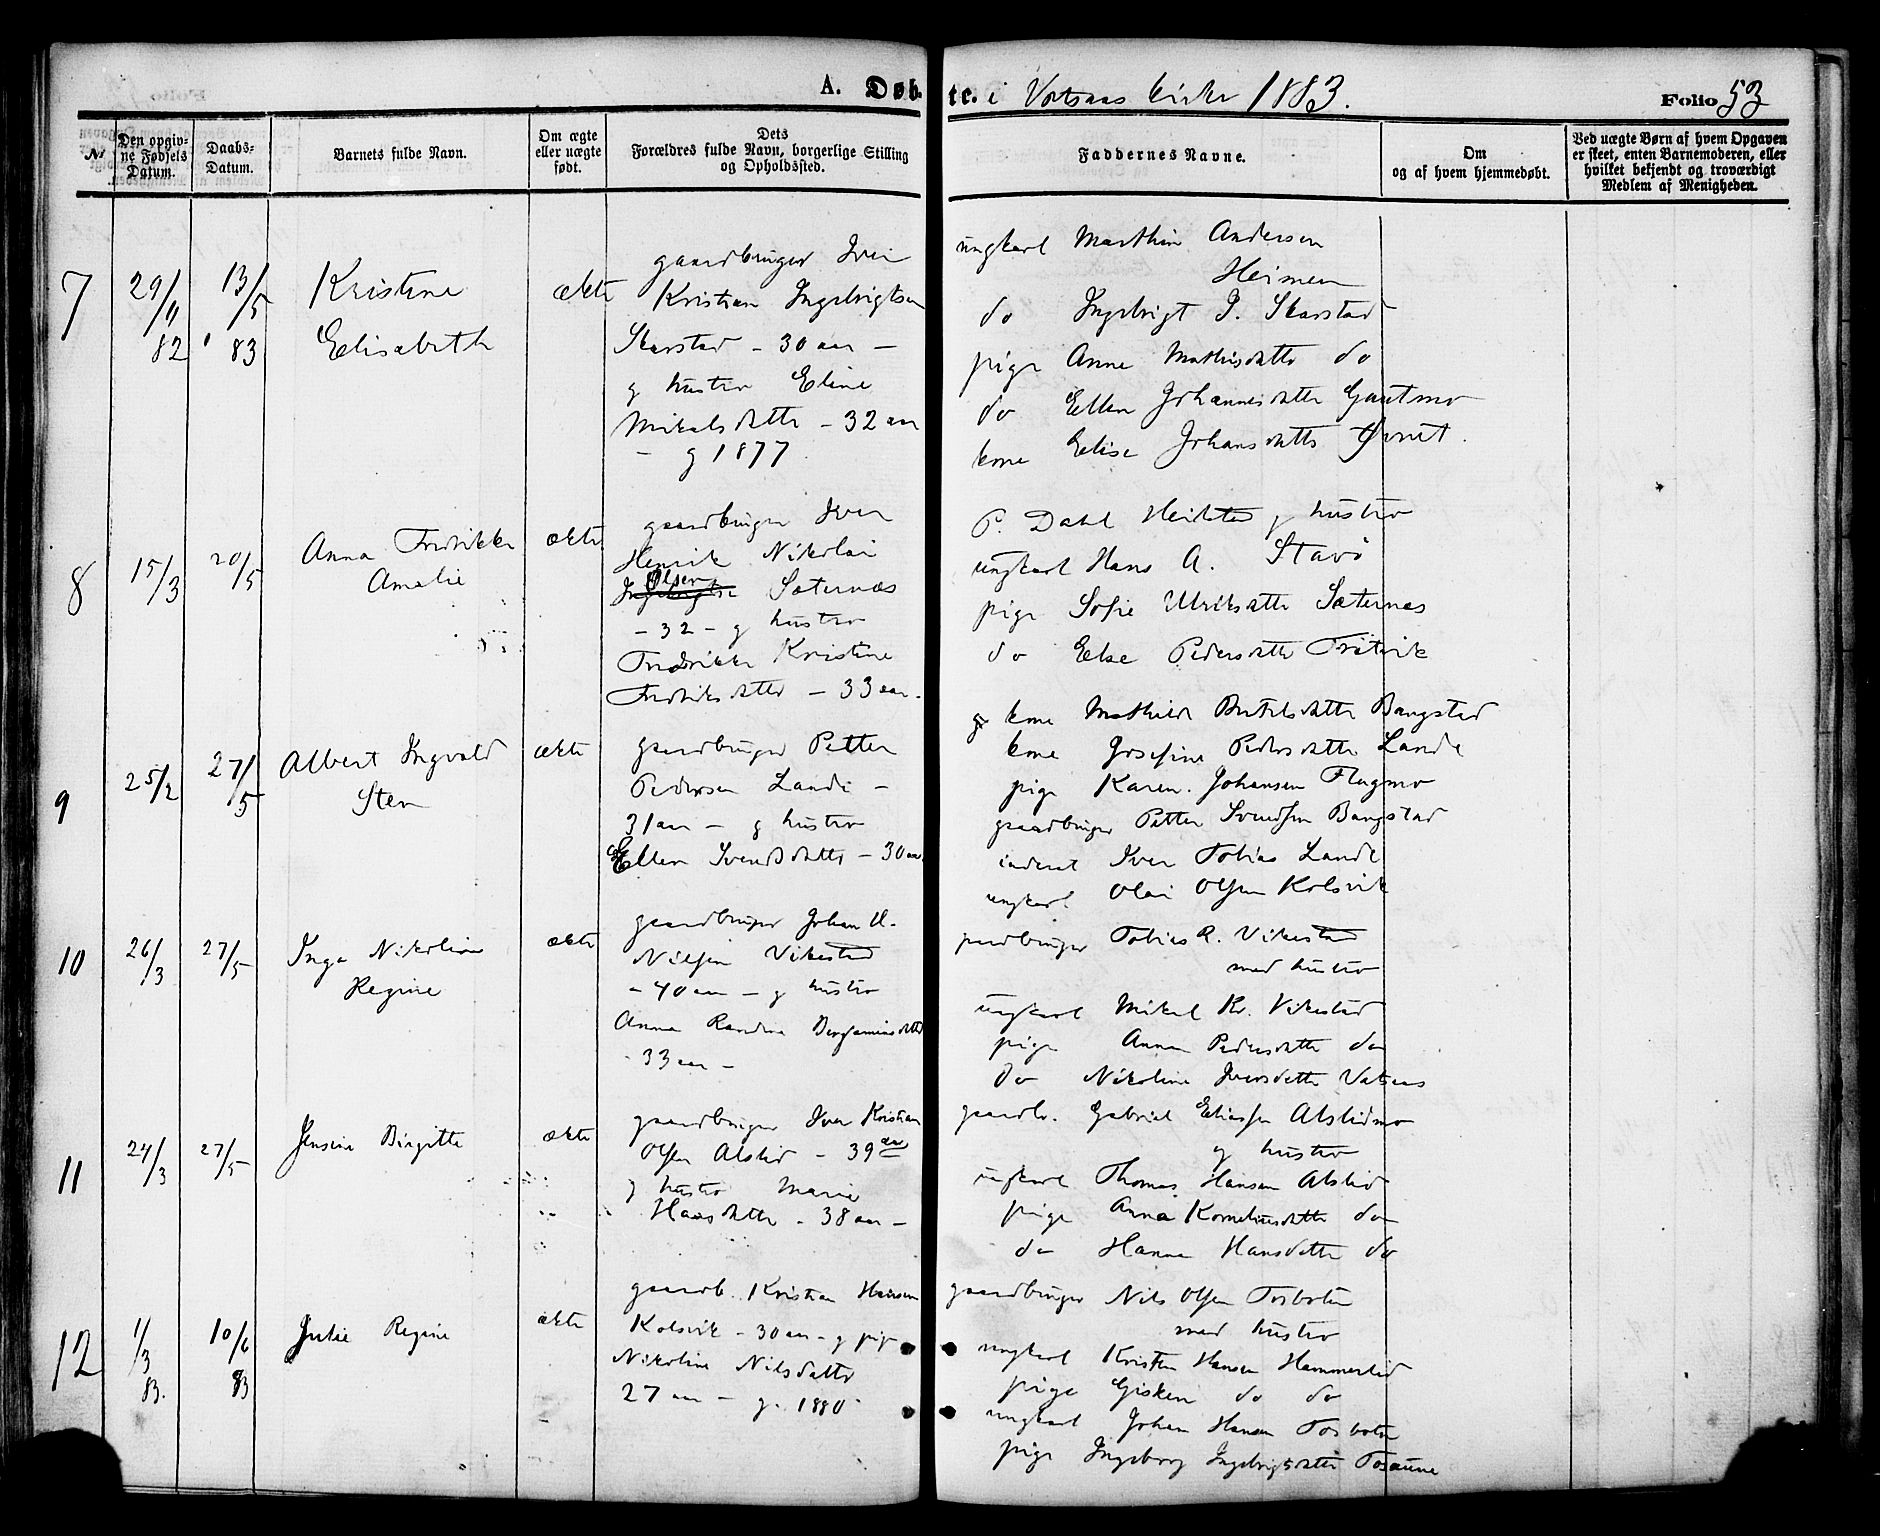 A. Døb-
te. i Votsaas kirke 1883.
Folio 53
№
Den opgiv-
ne Fødsels
Datum.
Daabs-
Datum.
Barnets fulde Navn.
Om ægte
eller uægte
født.
Dets
Forældres fulde Navn, borgerlige Stilling
og Opholdssted.
Faddernes Navne.
Om
og af hvem hjemmedøbt.
Ved uægte Børn af hvem Opgaven
er skeet, enten Barnemoderen, eller
hvilket bekjendt og troværdigt
Medlem af Menigheden.
7
29/11
82
13/5
83
Kristine
Elisabeth
ækte
gaardbruger
Kristian Ingebrigtsen
Skarstad - 30 aar -
g hustru Eline
Mikalsdatter - 32 aar
- g 1877
ungkarl Marthin Andersen
Heimen
do Ingebrigt J. Skarstad
pige Anne Mathisdatter do
do Ellen Johannesdatter Gautmo
kone Elise Johansdatter Øvret
8
15/3
20/5
Anna Fredrikke
Amalie
ækte
gaardbruger Iver
Henrik Nikolai
Olsen Sæternæs
- 32 - g hustru
Fredrikke Kristine
Fredriksdatter - 33 aar -
P. Dahl g hustru
ungkarl Hans A. Stavø
pige Sofie Ulriksdatter Sæternes
do Else Pedersdatter
9
25/2
27/5
Albert Ingvald
Sten
ækte
gaardbruger Petter
Pedersen Lande -
31 aar - g hustru
Ellen Svendsdatter - 30 aar
g kone Mathilde Bertelsdatter Bangstad
kone Josefine Pedersdatter Lande
pige Karen Johansen Flagmo
gaardbruger Petter Svendsen Bangstad
inderst Iver Tobias Lande
ungkarl Olai Olsen Kolsvik
10
26/3
27/5
Inga Nikoline
Regine
ækte
gaardbruger Johan U.
Nilsen Vikestad
- 40 aar - g hustru
Anna Randine Benjaminsdatter
- 33 aar -
gaardbruger Tobias R. Vikestad
med hustru
ungkarl Mikal Kr. Vikestad
pige Anna Pedersdatter do
do Nikoline Iversdatter Vatsaas
11
24/3
27/5
Jensine Birgitte
ækte
gaardbruger Iver Kristian
Olsen Alstid - 39 aar
g hustru Marie
Hansdatter - 38 aar -
gaardb. Gabriel Eliassen Alstidmo
g hustru
ungkarl Thomas Hansen Alstid
pige Anna Korneliusdatter do
do Hanna Hansdatter do
12
1/3
83.
10/6
83
Julie Regine
ækte
gaardb. Kristian Hansen
Kolsvik - 30 aar - g pige
Nikoline Nilsdatter
27 aar - g. 1880
gaardbruger Nils Olsen Tosboten
med hustru
ungkarl Kristen Hansen Hammerlid
pige Gisken do do
ungkarl Johan Hansen Tosboten
pige Ingeborg Ingebrigtsdatter Tosaune